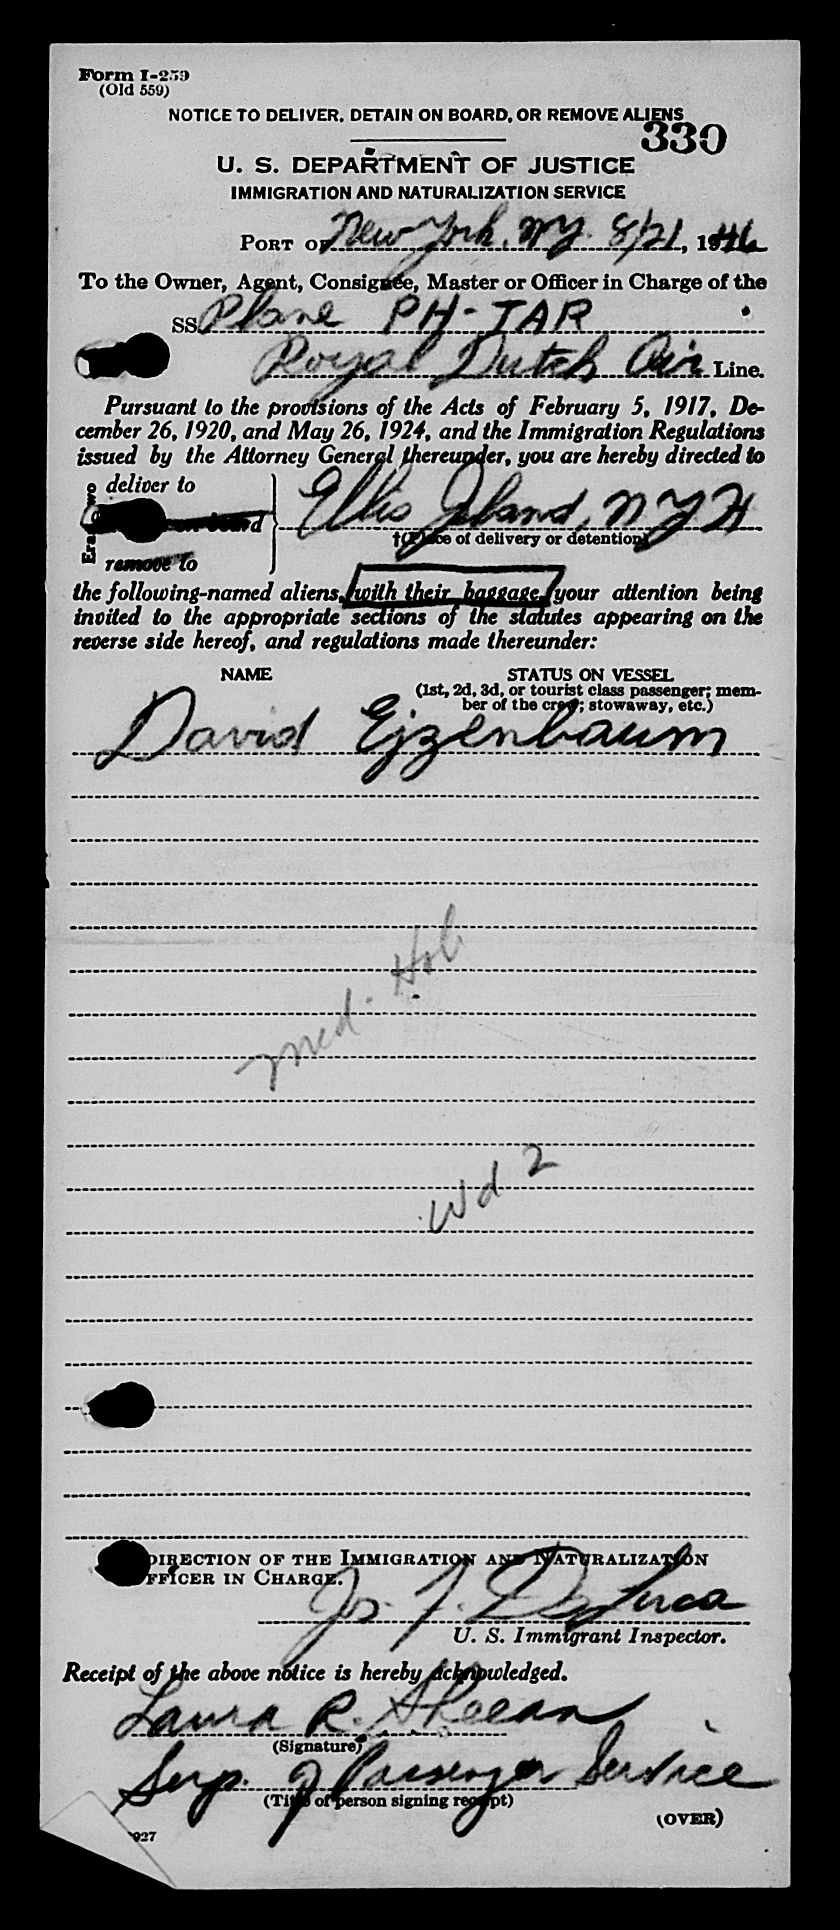 Form I-259
(Old 559)
NOTICE TO DELIVER, DETAIN ON BOARD, OR REMOVE ALIENS
330
U. S. DEPARTMENT OF JUSTICE
IMMIGRATION AND NATURALIZATION SERVICE
PORT OF New York, NY. 8/21, 1946
To the Owner, Agent, Consignee, Master or Officer in Charge of the
SS Plane PH-TAR
Royal Dutch Air Line.
Pursuant to the provisions of the Acts of February 5, 1917, De-
cember 26, 1920, and May 26, 1924, and the Immigration Regulations
issued by the Attorney General thereunder, you are hereby directed to
deliver to
on board Ellis Island, NYH
†(Place of delivery or detention)
remove to
the following-named aliens, with their baggage, your attention being
invited to the appropriate sections of the statutes appearing on the
reverse side hereof, and regulations made thereunder:
NAME STATUS ON VESSEL
(1st, 2d, 3d, or tourist class passenger; mem-
ber of the crew; stowaway, etc.)
David Ejzenbaum
Med. Hol
Wd 2
DIRECTION OF THE IMMIGRATION AND NATURALIZATION
OFFICER IN CHARGE.
Jos. F. DeLuca
U. S. Immigrant Inspector.
Receipt of the above notice is hereby acknowledged.
Laura R. Sheean
(Signature)
Serp. of Passenger Service
(Title of person signing receipt)
(OVER)
927